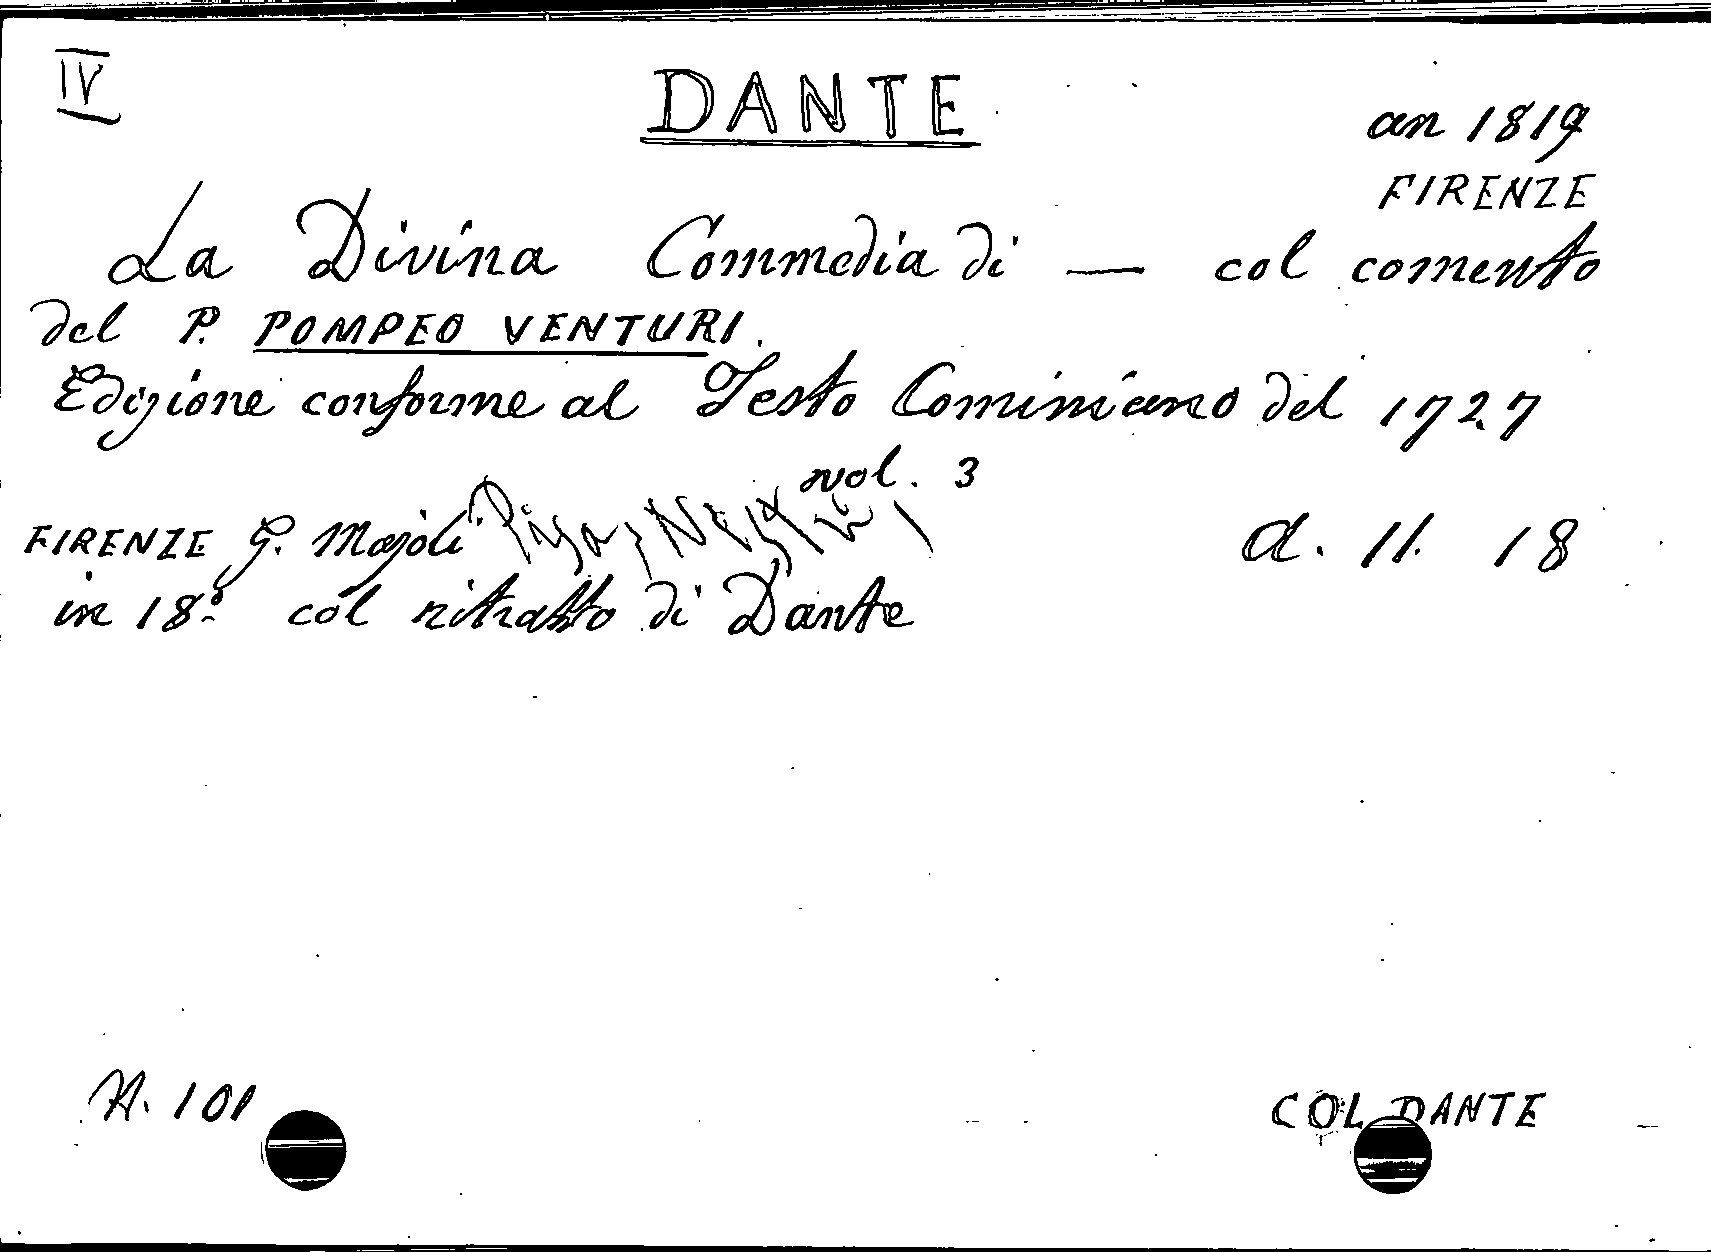 IV
DANTE
an 1819
FIRENZE
La Divina Commedia di — col comento
del P. POMPEO VENTURI.
Edizione conforme al Testo Cominiano del 1727
vol. 3
FIRENZE G. Majoli
a. 11. 18
in 18º col ritratto di Dante
A. 101
COL DANTE